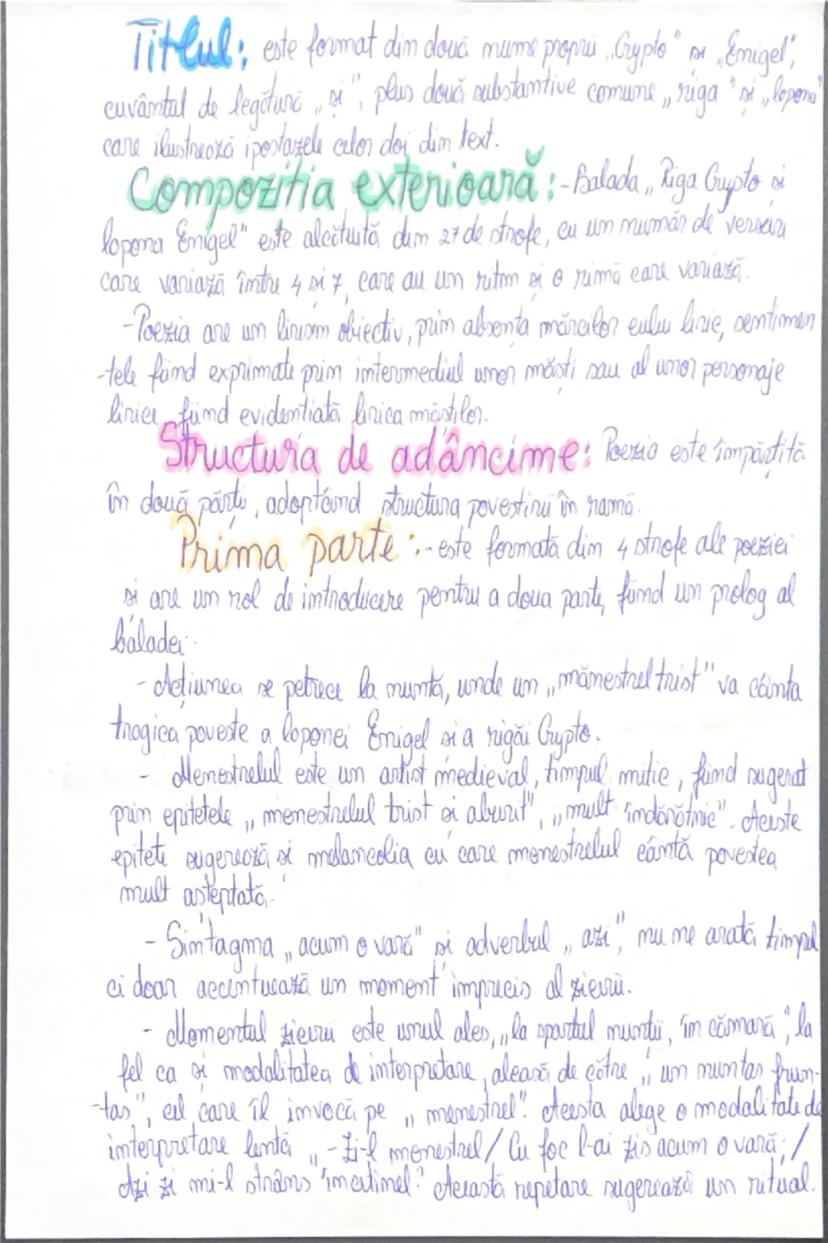 Titlul: este format din două nume proprii „Crypto" și „Enigel",
cuvântul de legătură „și", plus două substantive comune „riga" și „lapona"
care ilustrează ipostazele celor doi din text.
Compozitia exterioară: -Balada „Riga Crypto și
lapona Enigel" este alcătuită din 27 de strofe, cu un număr de versuri
care variază între 4 și 7, care au un ritm și o rimă care variază.
-Poezia are un lirism obiectiv, prin absența mărcilor eului liric, sentimen
-tele fiind exprimate prin intermediul unor măști sau al unor personaje
lirice, fiind evidentiată lirica măștilor.
Structura de adâncime: Poezia este împărțită
în două părți, adoptând structura povestirii în ramă.
Prima parte: -este formată din 4 strofe ale poeziei
și are un rol de introducere pentru a doua parte, fiind un prolog al
baladei.
- Acțiunea se petrece la nuntă, unde un „mănestrel trist" va cânta
tragica poveste a laponei Enigel si a rigăi Crypto.
- Menestrelul este un artist medieval, timpul mitic, fiind sugerat
prin epitetele „menestrelul trist și aburit", „mult îndărătnic". Aceste
epitete sugerează și melancolia cu care menestrelul cântă povestea
mult așteptată.
- Sintagma „acum o vară" și adverbul „azi", nu ne arată timpul
ci doar accentuează un moment imprecis al zicerii.
- Momentul zicerii este unul ales, „la spartul nuntii, în cămară", la
fel ca și modalitatea de interpretare, aleasă de către „un nuntaș frun-
-taș", cel care îl invocă pe „menestrel". Acesta alege o modalitate de
interpretare lentă „-Zi-l menestrel / Cu foc l-ai zis acum o vară; /
Azi zi mi-l strâns încetinel". Această repetare sugerează un ritual.